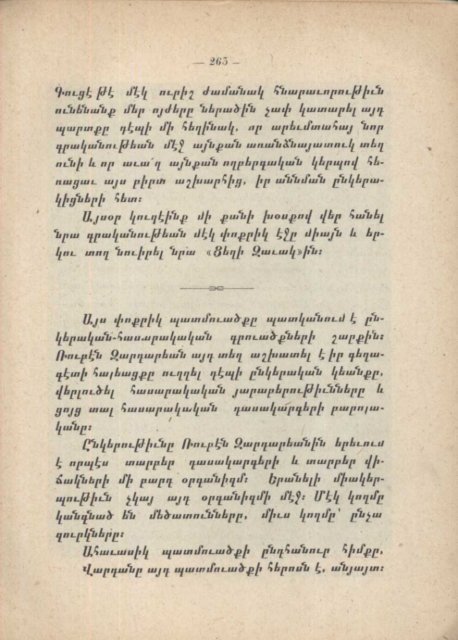 — 263 —
Գուցէ թէ մէկ ուրիշ ժամանակ հնարաւորութիւն
ունենանք մեր ոյժերը ներածին չափ կատարել այդ
պարտքը դէպի մի հեղինակ, որ արեւմտահայ նոր
գրականութեան մէջ այնքան առանձնայատուկ տեղ
ունի և որ աւա՜ղ այնքան ողբերգական կերպով հե-
ռացաւ այս բիրտ աշխարհից, իր աննման ընկերա-
կիցների հետ։
Այսօր կուզէինք մի քանի խօսքով վեր հանել
նրա գրականութեան մէկ փոքրիկ էջը միայն և եր-
կու տող նուիրել նրա «Ցեղի Զաւակ»ին։
Այս փոքրիկ պատմուածքը պատկանում է ըն-
կերական-հասարակական գրուածքների շարքին։
Ռուբէն Զարդարեան այդ տեղ աշխատել է իր գեղա-
գէտի հայեացքը ուղղել դէպի ընկերական կեանքը,
վերլուծել հասարակական յարաբերութիւնները և
ցոյց տալ հասարակական դասակարգերի բարոյա-
կանը։
Ընկերութիւնը Ռուբէն Զարդարեանին երեւում
է որպէս տարբեր դասակարգերի և տարբեր վի-
ճակների մի բարդ օրգանիզմ։ Երանելի միակեր-
պութիւն չկայ այդ օրգանիզմի մէջ։ Մէկ կողմը
կանգնած են մեծատունները, միւս կողմը՝ ընչա
զուրկները։
Ահաւասիկ պատմուածքի ընդհանուր հիմքը,
Վարդանը այդ պատմուածքի հերոսն է, անյայտ։